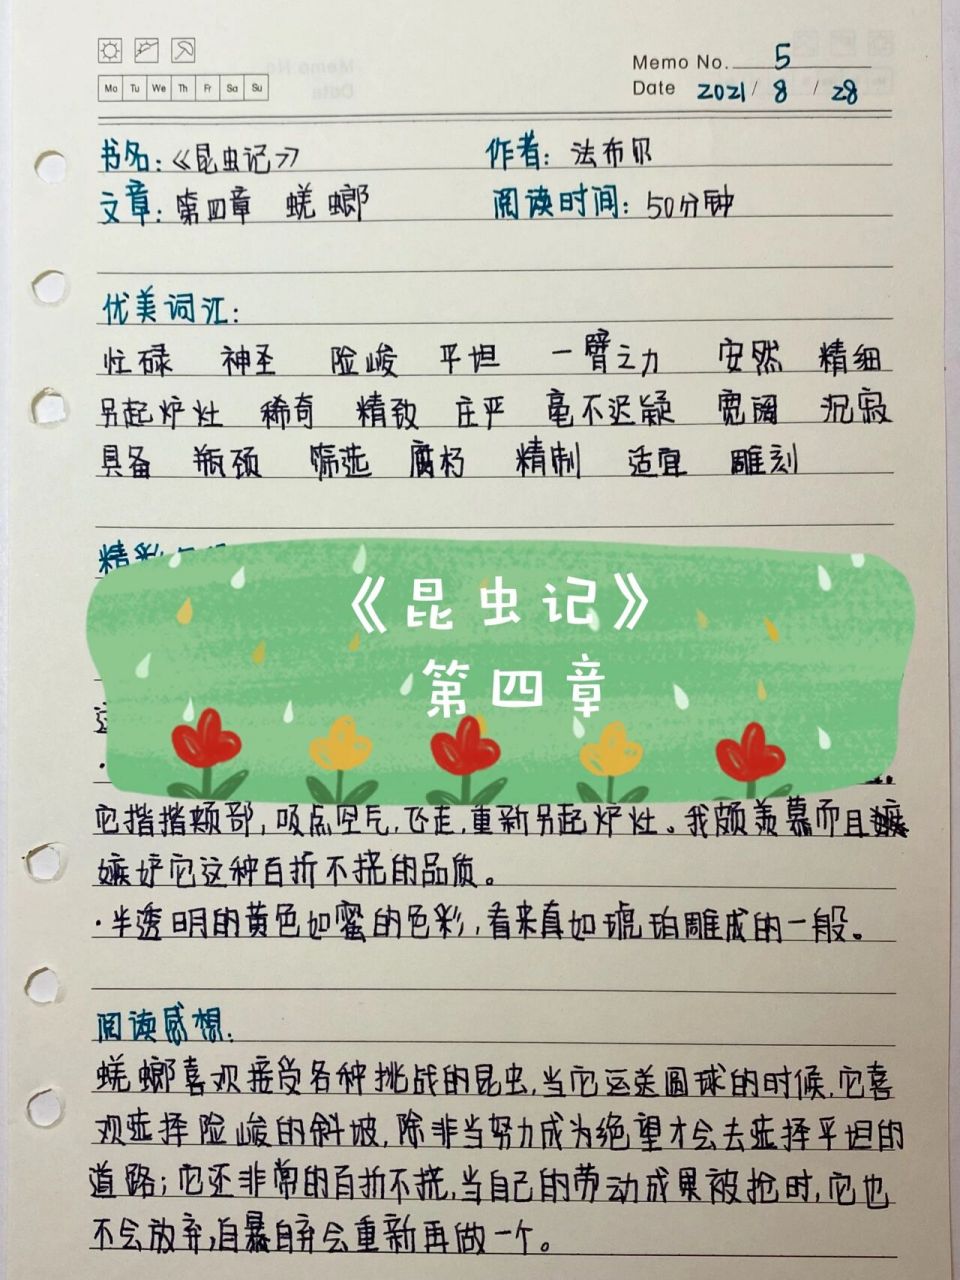 Memo No. 5
Mo Tu We Th Fr Sa Su
Date 2021 / 8 / 28
书名:《昆虫记》 作者: 法布尔
文章: 第四章 蜣螂 阅读时间: 50分钟
优美词汇:
忙碌 神圣 险峻 平坦 一臂之力 安然 精细
另起炉灶 稀奇 精致 庄严 毫不迟疑 宽阔 沉寂
具备 瓶颈 筛选 腐朽 精制 适宜 雕刻
精彩
《昆虫记》
第四章
它揩揩颊部,吸点空气,飞走,重新另起炉灶。我颇羡慕而且
嫉妒它这种百折不挠的品质。
·半透明的黄色如蜜的色彩,看来真如琥珀雕成的一般。
阅读感想:
蜣螂喜欢接受各种挑战的昆虫,当它运送圆球的时候,它喜
欢选择险峻的斜坡,除非当努力成为绝望才会去选择平坦的
道路;它还非常的百折不挠,当自己的劳动成果被抢时,它也
不会放弃,自暴自弃会重新再做一个。